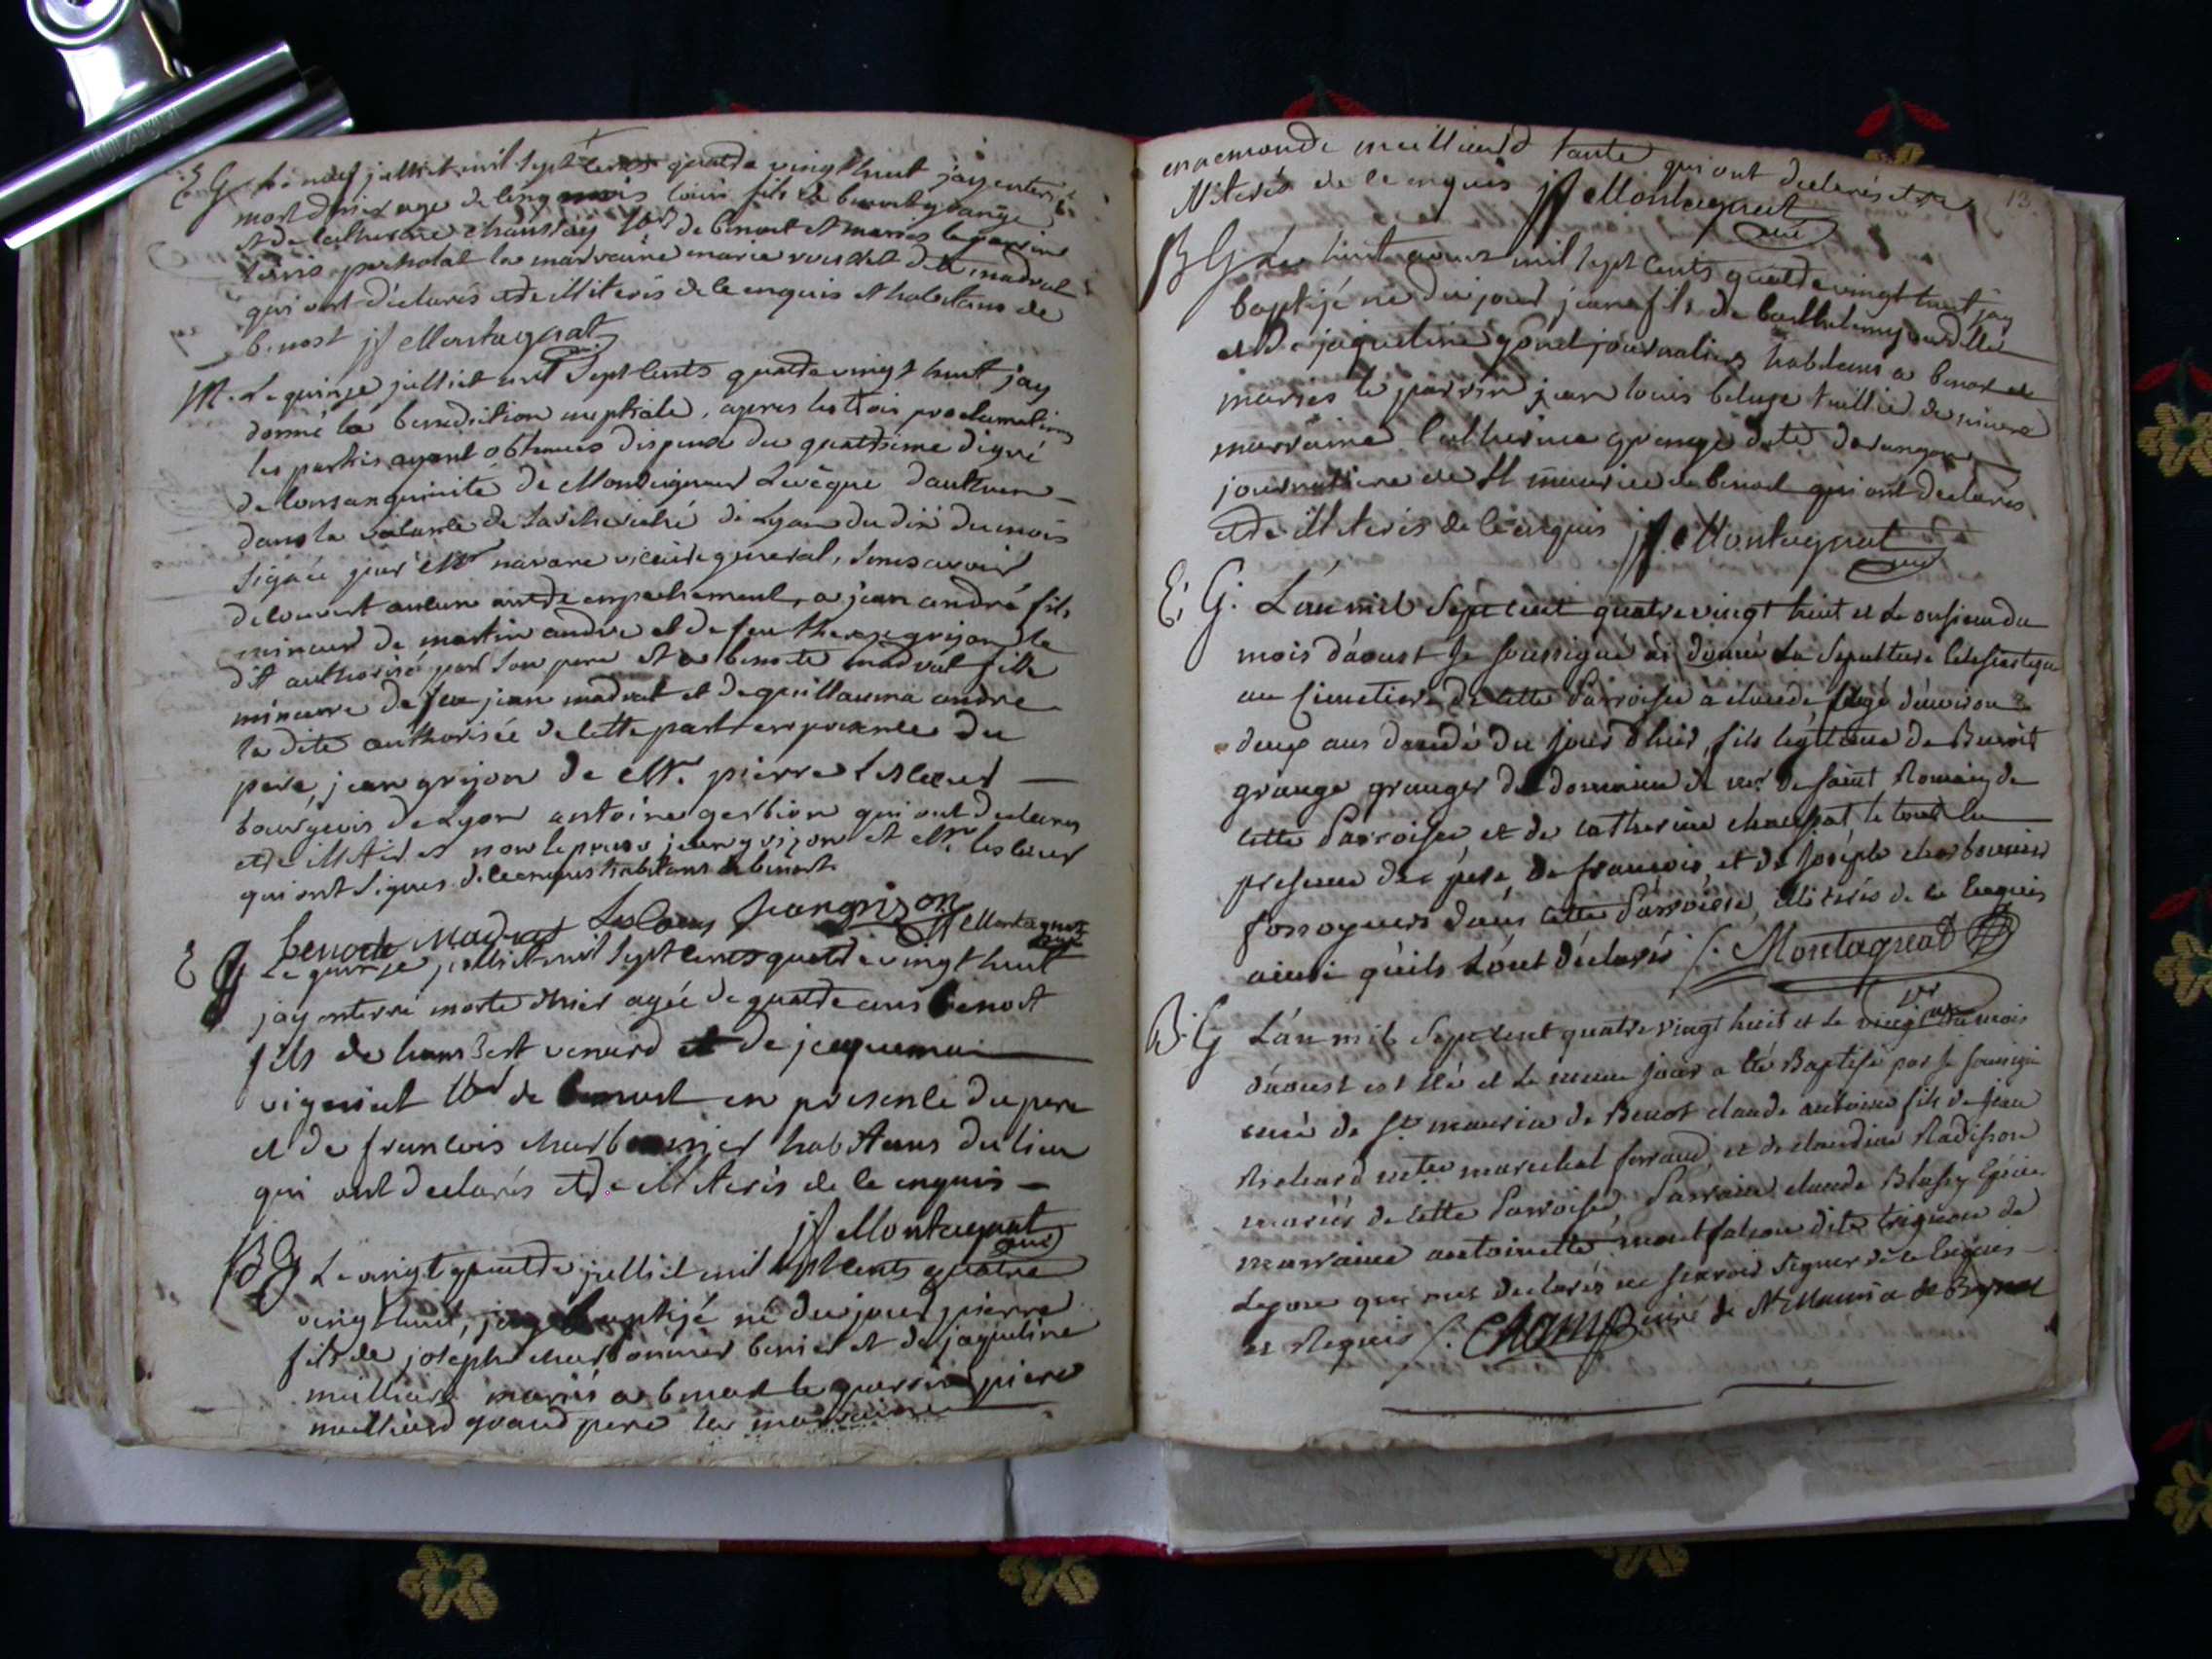 E G Le neuf julliet mil sept cents quatre vingt huit jay enterré
mort d'hier age de cinq mois louis fils de benoit grange
et de catherine chaussay de benost et mariés le parrin
louis la marraine marie dit madrat
qui ont déclarés etre illiterés de ce enquis et habitans de
benost jf Montagnat curé
M. Le quinze julliet mil sept cents quatre vingt huit jay
donné la benediction nuptiale, apres les trois proclamations
les parties ayant obtenues dispense du quatrieme digré
de consanguinité de Monseigneur Levêque dauthun
dans la vacance de larcheveché de Lyon du dix du mois
signée par Mr navare vicaire general, sans avoir
decouvert aucun autre empechement, a jean andré fils
mineur de martin andre et de feu therese grizon le
dit authorisé par son pere et a benoite madrat fille
mineure de feu jean madrat et de guillauma andre
la dite authorisée de cette part en presence du
pere, jean grizon de Mr. pierre Lescoeur
bourgeois de Lyon antoine gerbion qui ont declarés
etre illiterés non le pere jean grizon et Mr. lescoeur
qui ont signés de ce enquis habitans de benost
benoite Madrat Lescoeur Jean grizon jf Montagnat curé
E G Le quinze julliet mil sept cents quatre vingt huit
jay enterré morte dhier agée de quatre ans benoit
fils de humbert venard et de jaquema
vigniat de benost en presence du pere
et de francois charbonnier habitans du lieu
qui ont declarés etre illiterés de ce enquis
jf Montagnat curé
B G Le vingt quatre julliet mil sept cents quatre
vingt huit, jay baptizé né du jour pierre
fils de joseph charbonnier benier et de jaqueline
meilliard mariés a benost le parrin piere
meilliard grand pere la marraine
13.
enemonde meilliard tante qui ont declarés etre
illiterés de ce enquis jf Montagnat curé
B G Le huit aoust mil sept cents quatre vingt huit jay
baptizé né du jour jean fils de barthelemy
et de jaqueline gonet journaliers habitans a benost et
mariés le parrin jean louis beluze de
marraine Catherine grange dite
journaliere de St maurice de benost qui ont declarés
etre illiterés de ce enquis jf. Montagnat curé
E, G. L'an mil sept cent quatre vingt huit et le onsieme du
mois d'aoust Je soussigné ai donné la sepulture eclesiastique
au cimetiere de cette Parroisse a claude agé d'environ
deux ans decedé du jour d'hier, fils légitime de Benoit
grange granger du domaine de mr. de saint Romain de
cette Parroisse, et de catherine chaussat le tout en
presence du pere, de francois, et de Joseph charbonnier
fossoyeurs dans cette Parroisse, illiterés de ce enquis
ainsi qu'ils L'ont déclarés /. Montagnat
B. G L'an mil sept cent quatre vingt huit et le vingt du mois
d'aoust est né et le meme jour a été Baptisé par Je soussigné
curé de St. maurice de Benost claude antoine fils de jean
Richard me. marechal ferrand, et de claudine Radisson
mariés de cette Parroisse, Parrain claude
marraine antoinette montfalcon dite de
Lagone qui ont declarés ne scavoir signer de ce enquis
et Requis /. Champ curé de St Maurice de Beynost